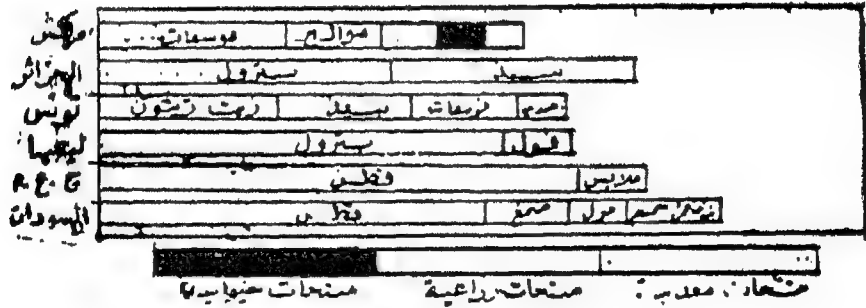 مراكش فوسفات موالح
الجزائر بترول نبيذ
تونس زيت زيتون نبيذ فوسفات حديد
ليبيا بترول فول
ج.ع.م قطن ملابس
السودان قطن صمغ فول سمسم
منتجات معدنية منتجات زراعية منتجات حيوانية